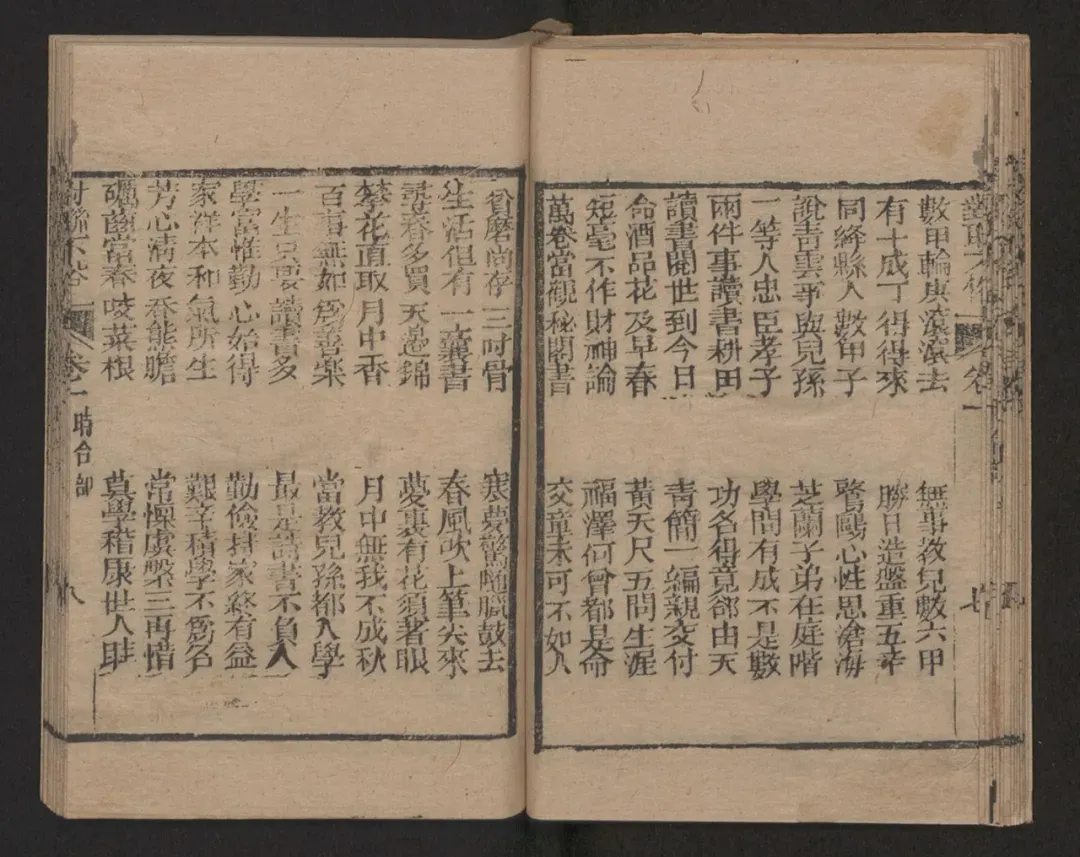 對聯不俗 卷一
數甲輪庚滾滾去
無事教兒數六甲
有十成丁得得來
勝日造盤重五辛
同絳縣人數甲子
鷺鷗心性思滄海
說青雲事與兒孫
芝蘭子弟在庭階
一等人忠臣孝子
學問有成不是數
兩件事讀書耕田
功名得竟郤由天
讀書閱世到今日
青簡一編親交付
命酒品花及早春
黃天尺五問生涯
短毫不作財神論
福澤何曾都是命
萬卷當觀秘閣書
交章未可不如人
貧磨尚存三吋骨
寒夢驚隨臘鼓去
生活但有一囊書
春風吹上筆尖來
尋春多買天邊錦
夢裏有花須著眼
攀花直取月中香
月中無我不成秋
百事無如為善樂
當教兒孫都入學
一生只要讀書多
最是讀書不負人
學富惟勤心始得
勤儉持家終有益
家祥本和氣所生
艱辛積學不為名
芳心清夜吞熊膽
常懍虞槃三再惜
礪齒當春咬菜根
莫學稽康世人
對聯不俗 卷一 時令部 八